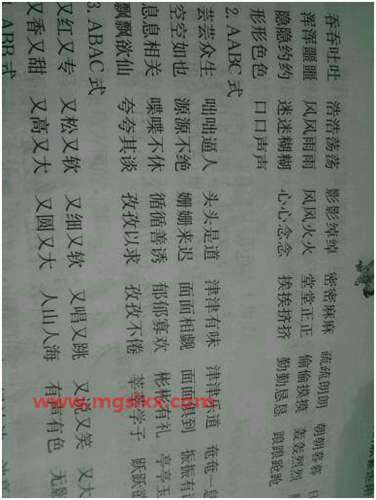 吞吞吐吐 浩浩荡荡 影影绰绰 密密麻麻 疏疏朗朗 朝朝暮暮
浑浑噩噩 风风雨雨 风风火火 堂堂正正 偷偷摸摸 轰轰烈烈
隐隐约约 迷迷糊糊 心心念念 挨挨挤挤 勤勤恳恳 踉踉跄跄
形形色色 口口声声
2. AABC 式
芸芸众生 咄咄逼人 头头是道 津津有味 津津乐道 奄奄一息
空空如也 源源不绝 姗姗来迟 面面相觑 面面俱到 振振有
息息相关 喋喋不休 循循善诱 郁郁寡欢 彬彬有礼 亭亭玉
飘飘欲仙 夸夸其谈 孜孜以求 孜孜不倦 莘莘学子 跃跃欲
3. ABAC 式
又红又专 又松又软 又细又软 又唱又跳 又哭又笑 又大
又香又甜 又高又大 又圆又大 人山人海 有声有色 无
ABB 式
www.mgsxx.com